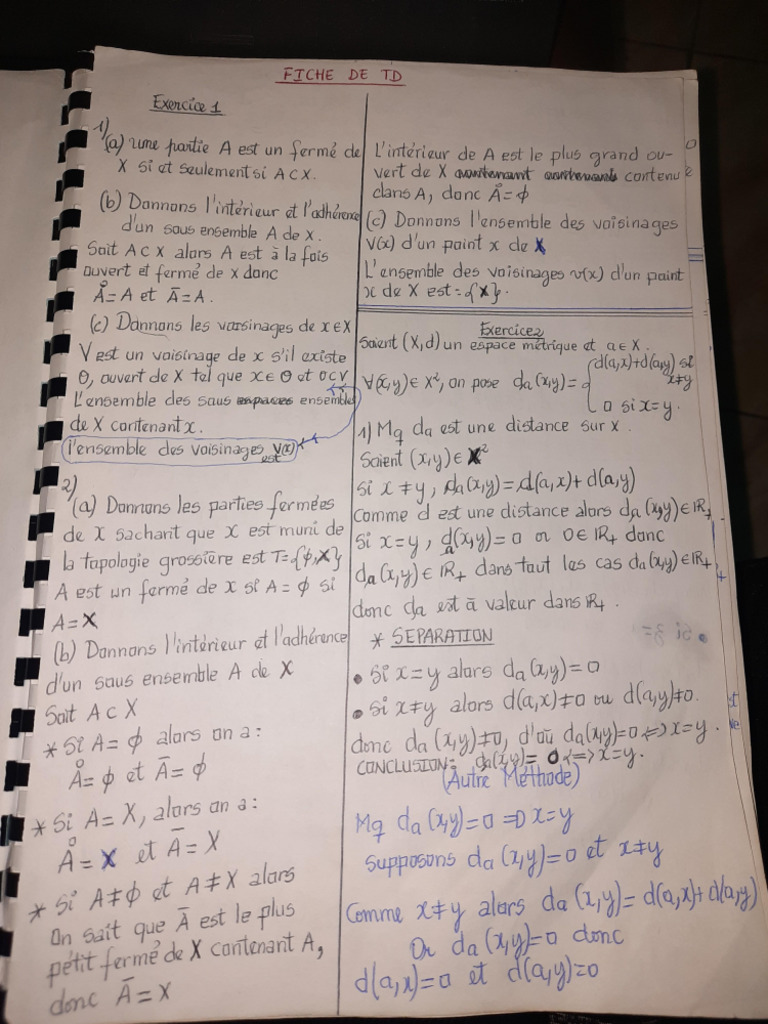 FICHE DE TD
Exercice 1
1)
(a) Une partie A est un fermé de
X si et seulement si A ⊂ X.
(b) Donnons l'intérieur et l'adhérence
d'un sous ensemble A de X.
Soit A ⊂ X alors A est à la fois
ouvert et fermé de X donc
Å = A et Ā = A.
(c) Donnons les voisinages de x ∈ X
V est un voisinage de x s'il existe
θ, ouvert de X tel que x ∈ θ et θ ⊂ V
L'ensemble des sous espaces ensembles
de X contenant x.
l'ensemble des voisinages V(x)
est
2)
(a) Donnons les parties fermées
de X sachant que X est muni de
la topologie grossière est T = {ϕ, X}
A est un fermé de X si A = ϕ si
A = X
(b) Donnons l'intérieur et l'adhérence
d'un sous ensemble A de X
Soit A ⊂ X
* Si A = ϕ alors on a :
Å = ϕ et Ā = ϕ
* Si A = X, alors on a :
Å = X et Ā = X
* Si A ≠ ϕ et A ≠ X alors
On sait que Ā est le plus
petit fermé de X contenant A,
donc Ā = X
L'intérieur de A est le plus grand ou-
vert de X contenu
dans A, donc Å = ϕ
(c) Donnons l'ensemble des voisinages
V(x) d'un point x de X
L'ensemble des voisinages V(x) d'un point
x de X est = {X}.
Exercice 2
Soient (X, d) un espace métrique et a ∈ X.
∀(x,y) ∈ X², on pose da(x,y) = { d(a,x)+d(a,y) si x≠y
0 si x = y.
1) Mq da est une distance sur X.
Soient (x,y) ∈ X²
Si x ≠ y, da(x,y) = d(a,x) + d(a,y)
Comme d est une distance alors da(x,y) ∈ IR+
Si x = y, da(x,y) = 0 or 0 ∈ IR+ donc
da(x,y) ∈ IR+ dans tout les cas da(x,y) ∈ IR+
donc da est à valeur dans IR+.
* SEPARATION
• Si x = y alors da(x,y) = 0
• Si x ≠ y alors d(a,x) ≠ 0 ou d(a,y) ≠ 0.
donc da(x,y) ≠ 0, d'où da(x,y) = 0 ⇔ x = y.
CONCLUSION: da(x,y) = 0 ⇔ x = y.
(Autre Méthode)
Mq da(x,y) = 0 ⇒ x = y
Supposons da(x,y) = 0 et x ≠ y
Comme x ≠ y alors da(x,y) = d(a,x) + d(a,y)
Or da(x,y) = 0 donc
d(a,x) = 0 et d(a,y) = 0